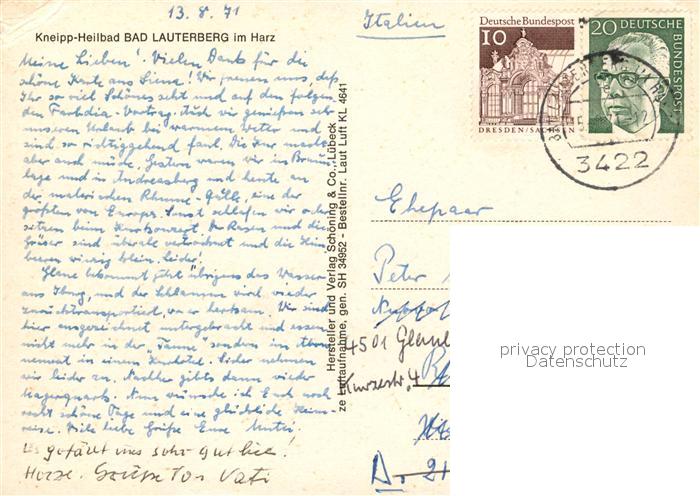 13.8.71
Italien
Kneipp-Heilbad BAD LAUTERBERG im Harz
Meine Lieben! Vielen Dank für die
schöne Karte aus Siena! Wir freuen uns, daß
Ihr so viel Schönes seht und auf den folgen
den Farbdia-Vortrag. Auch wir genießen sehr
unseren Urlaub bei warmem Wetter und
sind so richtiggehend faul. Die Kur macht
aber auch müde. Gestern waren wir in Braun
lage und in Andreasberg und heute an
der malerischen Rhume-Quelle, eine der
größten von Europa. Sonst schlafen wir oder
sitzen beim Kurkonzert. Der Rasen und die
Gräser sind überall vertrocknet und die Him
beeren winzig klein, leider!
bekommt jetzt übrigens das Wasser
aus und der Schlamm wird wieder
zurücktransportiert, war heilsam. Wir sind
hier ausgezeichnet untergebracht und essen
nicht mehr in der "Tanne" sondern im Abon
nement in einem Leider nehmen
wir leider zu. Nachher gibts dann wieder
Magerquark. Nun wünsche ich Euch noch
recht schöne Tage und eine glückliche Heim-
reise. Viele liebe Grüße Eure Mutti.
Es gefällt uns sehr gut hier!
Herzl. Grüße von Vati
Hersteller und Verlag Schöning & Co., Lübeck
ze Luftaufnahme, gen. SH 34952 - Bestellnr. Laut Luft KL 4641
Deutsche Bundespost
10
DRESDEN/SACHSEN
20 DEUTSCHE
BUNDESPOST
3422
Ehepaar
Peter
4501
Kurzestr. 4
privacy protection
Datenschutz